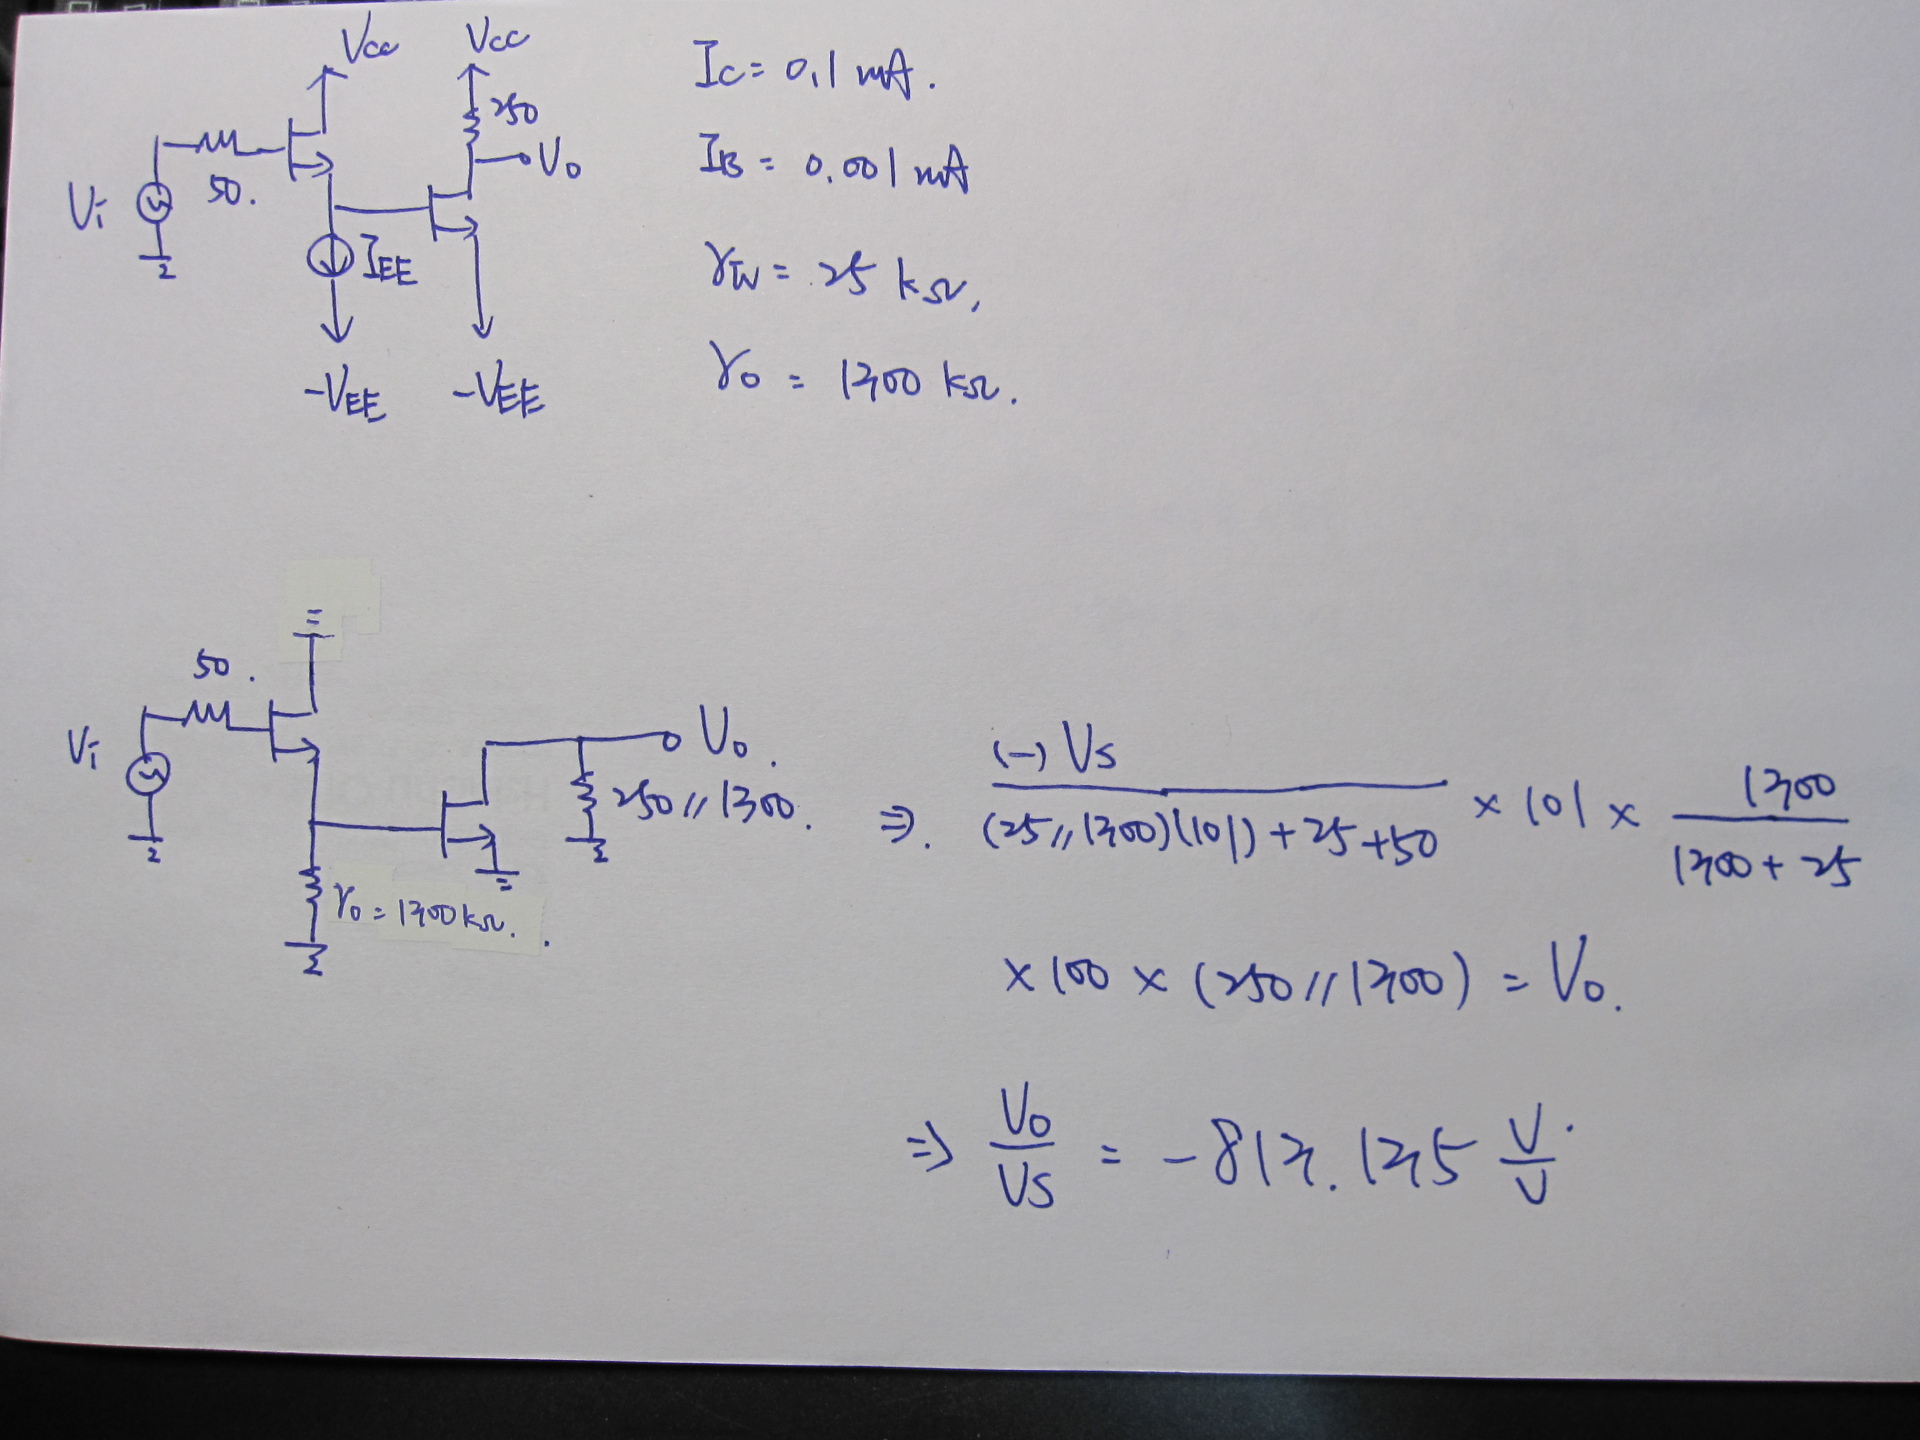 Vcc Vcc
250
Vo
Vi
50.
IEE
-VEE -VEE
Ic = 0.1 mA.
IB = 0.001 mA
rπ = 25 kΩ,
ro = 1300 kΩ.
50.
Vi
Vo.
250 // 1300.
ro = 1300 kΩ.
⇒. (-) Vs / (25 // 1300)(101) + 25 + 50 × 101 × 1300 / 1300 + 25
× 100 × (250 // 1300) = Vo.
⇒ Vo / Vs = -813.135 V / V.